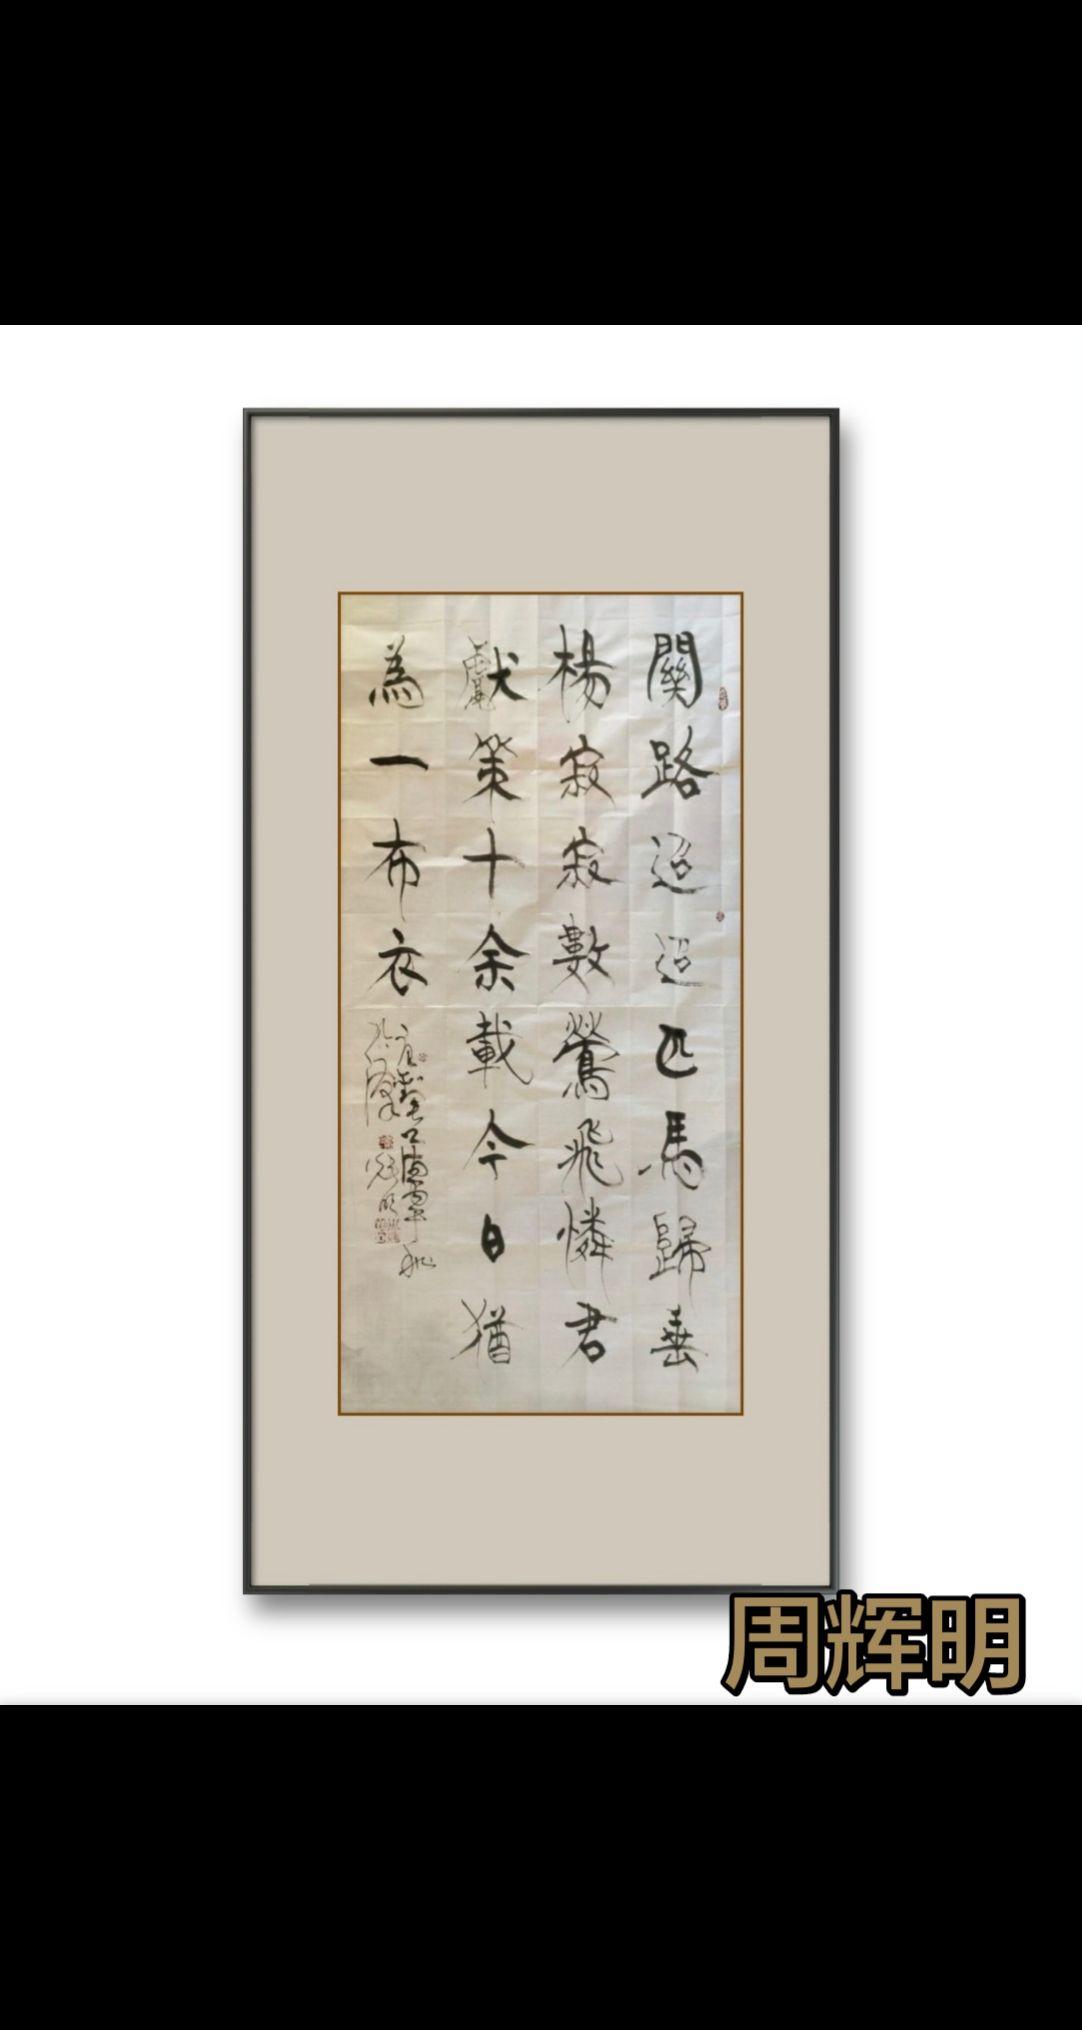 關路迢迢匹馬歸垂
楊寂寂數鶯飛憐君
獻策十余載今日猶
為一布衣
周辉明